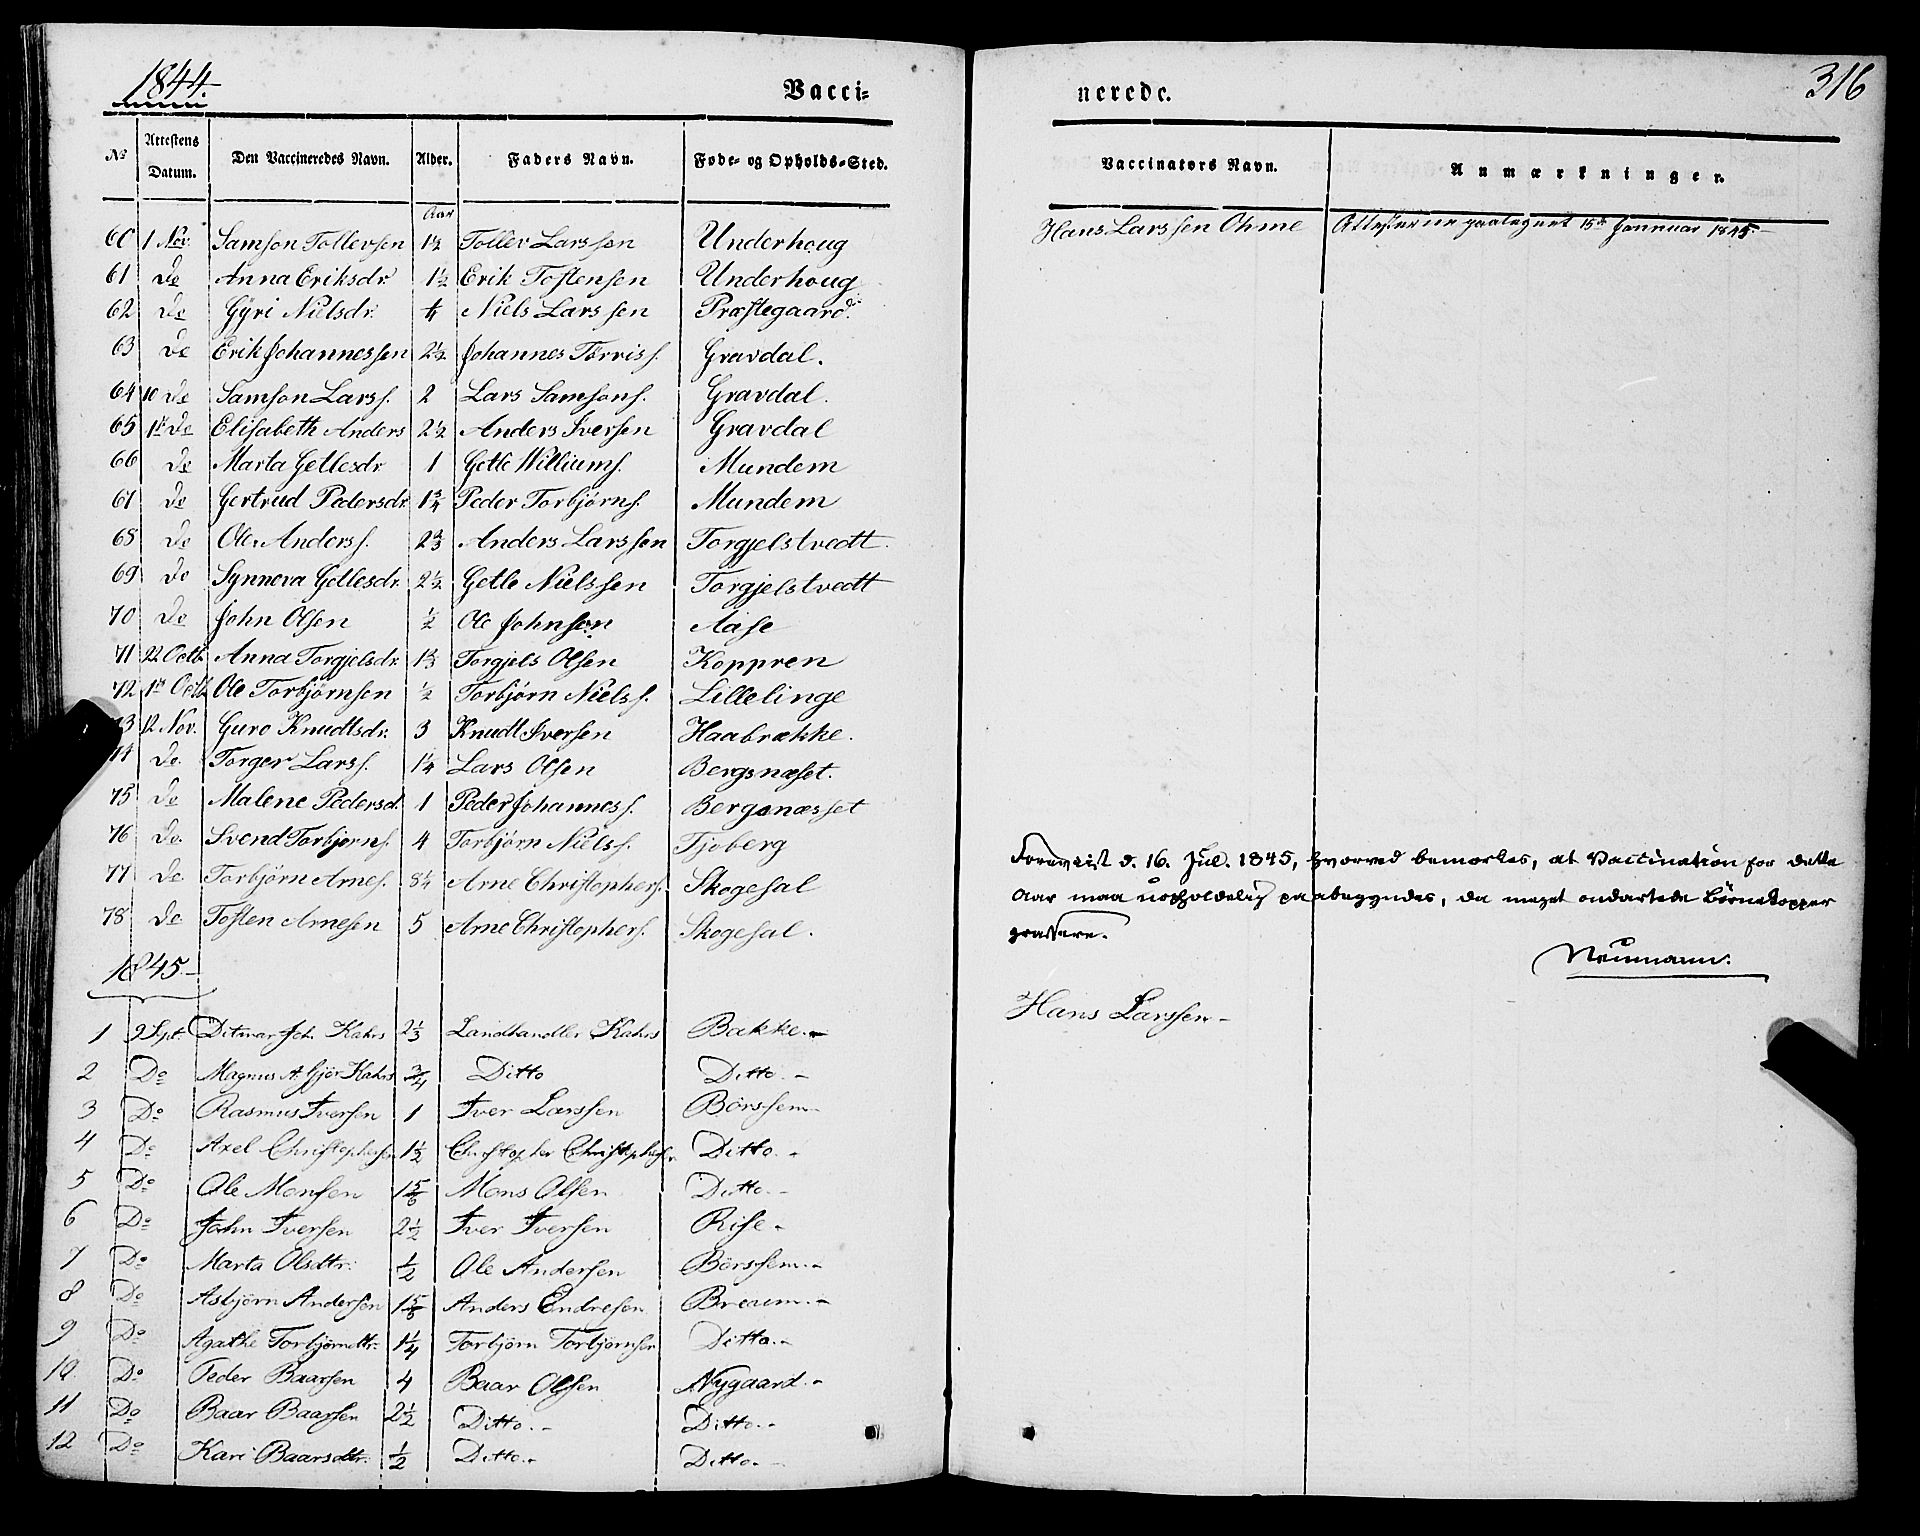 1844. Vacci= nerede. 316
No Attestens Datum. Den Vaccineredes Navn. Alder. Faders Navn. Føde- og Opholds-Sted. Vaccinators Navn. Anmærkninger.
Aar
60 1 Nov. Samson Tollevsen 1½ Tollev Larssen Underhoug Hans Larssen Ohme Attesterne paategnet 15de Januar 1845.-
61 do Anna Eriksdr. 1½ Erik Tostensen Underhoug
62 do Gyri Nielsdr. ¼ Niels Larssen Præstegaard.
63 do Erik Johannessen 2½ Johannes Torris s. Gravdal.
64 10 do Samson Larss. 2 Lars Samsons. Gravdal.
65 11 do Elisabeth Anders 2½ Anders Iversen Gravdal
66 do Marta Getlesdr 1 Getle Williams. Mundem
67 do Gertrud Pedersdr. 1¾ Peder Torbjørns. Mundem
68 do Ole Anderss. 2⅔ Anders Larssen Torgjelstvedt.
69 do Synneva Getlesdr. 2½ Getle Nielssen Torgjelstvedt
70 do John Olsen ½ Ole Johnson Aase
71 22 Octb Anna Torgjelsdr. 1⅔ Torgjels Olsen Koppren
72 Octb Ole Torbjørnsen ½ Torbjørn Nielss. Lillelinge
73 12 Nov. Guro Knudtsdr. 3 Knudt Iversen Haabrække.
74 do. Torger Larss. 1¼ Lars Olsen Bergsnæset.
75 do Malene Pedersd. 1 Peder Johanness. Bergsnæsset
76 do. Svend Torbjørns. 4 Torbjørn Nielss. Tjoberg
77 do Torbjörn Arnes. 8¼ Arne Christophers. Skogesal
78 do Tosten Arnesen 5 Arne Christophers. Skogesal.
Foreviist d. 16. Jul. 1845, hvorved bemærkes, at Vaccination for dette
Aar maa uopholdelig paabegyndes, da meget ondartede Börnekopper
grassere.
Neumann.
1845.-
1 9 Sept. Ditmar Joh. Kahrs 2⅓ Landhandler Kahrs Bakke.- Hans Larssen-
2 Do Magnus A. Kahrs ¾ Ditto Ditto.-
3 Do Rasmus Iversen 1 Iver Larssen Börssem.-
4 Do Axel Christophersen 1½ Christopher Christophers. Ditto.-
5 Do Ole Monsen 1⅚ Mons Olsen Ditto.-
6 Do John Iversen 2½ Iver Iversen Rise.-
7 Do Marta Olsdtr. ½ Ole Andersen Börssem.-
8 Do Asbjørn Andersen 1⅝ Anders Endresen Breum.-
9 Do Agathe Torbjørndtr. 1¼ Torbjørn Torbjørnsen Ditto.-
10. Do Peder Baarsen 4 Baar Olsen Nygaard.-
11 Do Baar Baarsen 2½ Ditto.- Ditto.-
12 Do Kari Baarsdtr. ½ Ditto.- Ditto.-